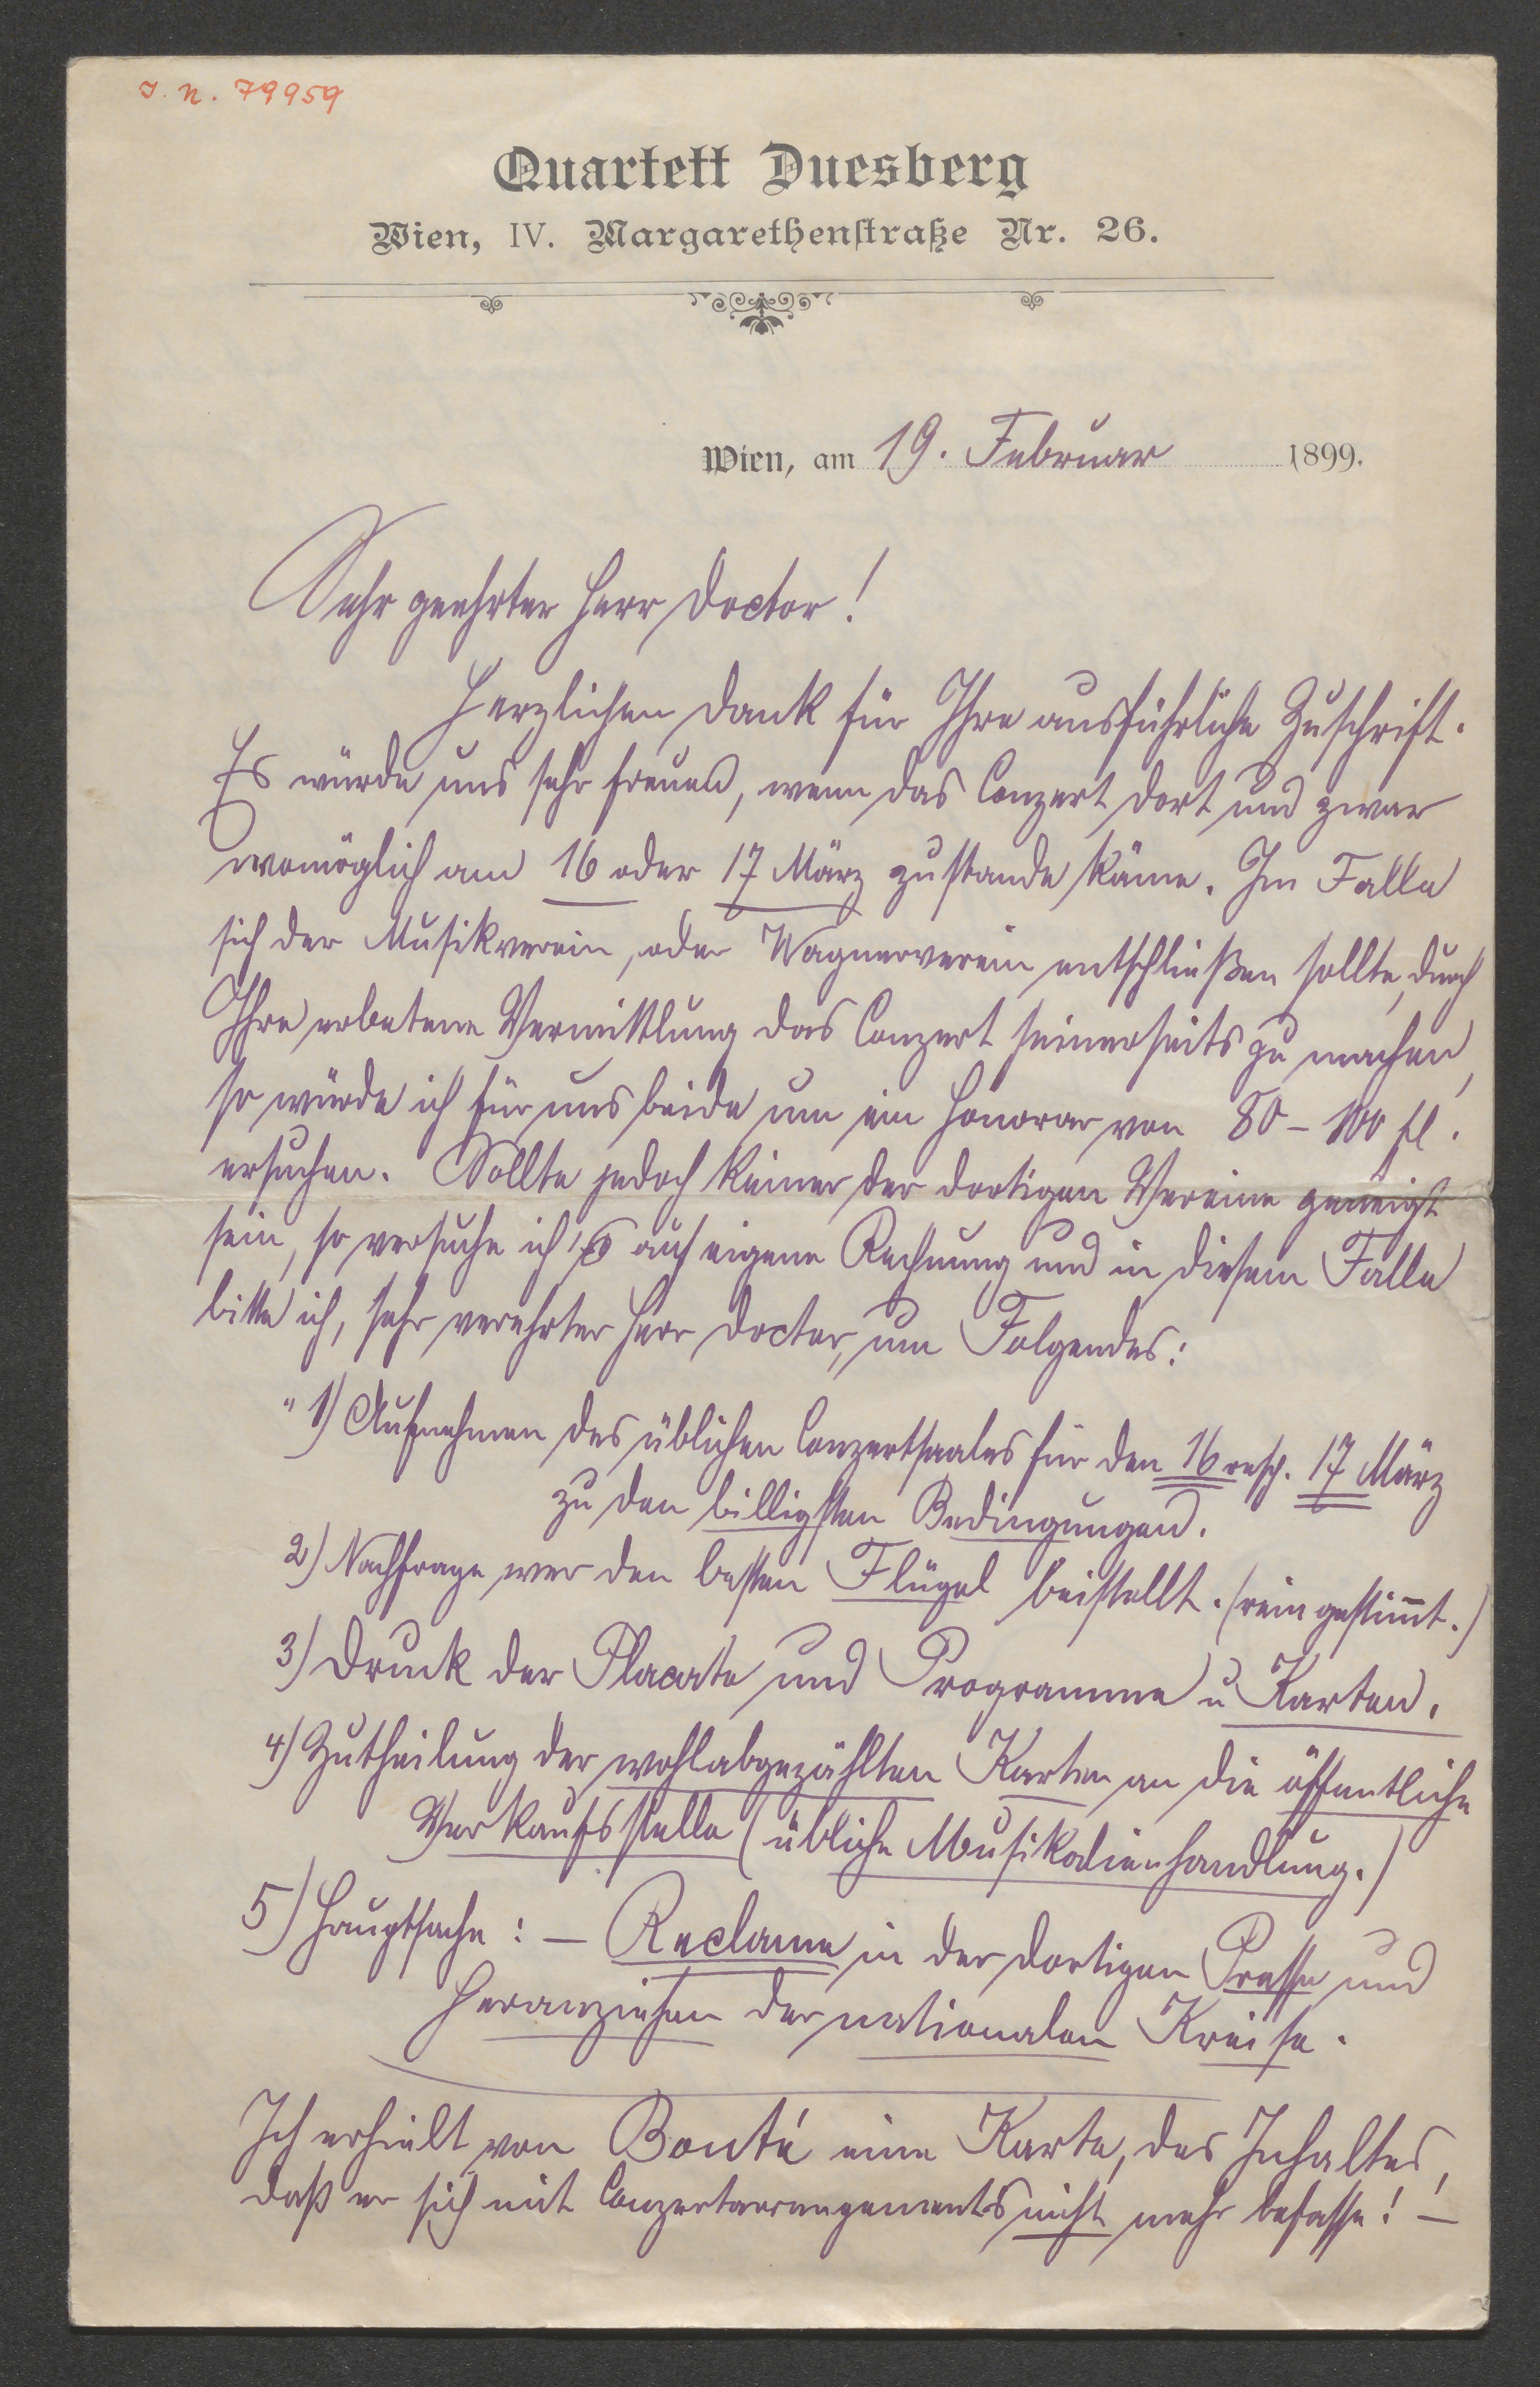 I. N. 79959
Quartett Duesberg
Wien, IV. Margarethenstraße Nr. 26.
Wien, am 19. Februar 1899.
Sehr geehrter Herr Doctor!
Herzlichen Dank für Ihre ausführliche Zuschrift.
Es würde uns sehr freuen, wenn das Conzert dort und zwar
womöglich am 16 oder 17 März zustande käme. Im Falle
sich der Musikverein, oder Wagnerverein entschließen sollte, durch
Ihre erbetene Vermittlung das Conzert seinerseits zu machen,
so würde ich für uns beide um ein Honorar von 80 – 100 fl.
ersuchen. Sollte jedoch keiner der dortigen Vereine geneigt
sein, so versuche ich auf eigene Rechnung und in diesem Falle
bitte ich, sehr verehrter Herr Doctor, um Folgendes:
" 1) Aufnehmen des üblichen Conzertsaales für den 16 resp. 17 März
zu den billigsten Bedingungen.
2) Nachfrage wer den besten Flügel beistellt. (rein gestim̅t.)
3) Druck der Placate und Programme u Karten.
4) Zutheilung der wohlabgezählten Karten an die öffentliche
Verkaufsstelle (übliche Musikalienhandlung.)
5) Hauptsache: – Reclame in der dortigen Presse und
Heranziehen der nationalen Kreise.
Ich erhielt von Bonté eine Karte, des Inhaltes,
daß er sich mit Conzertarrangements nicht mehr befasse! –